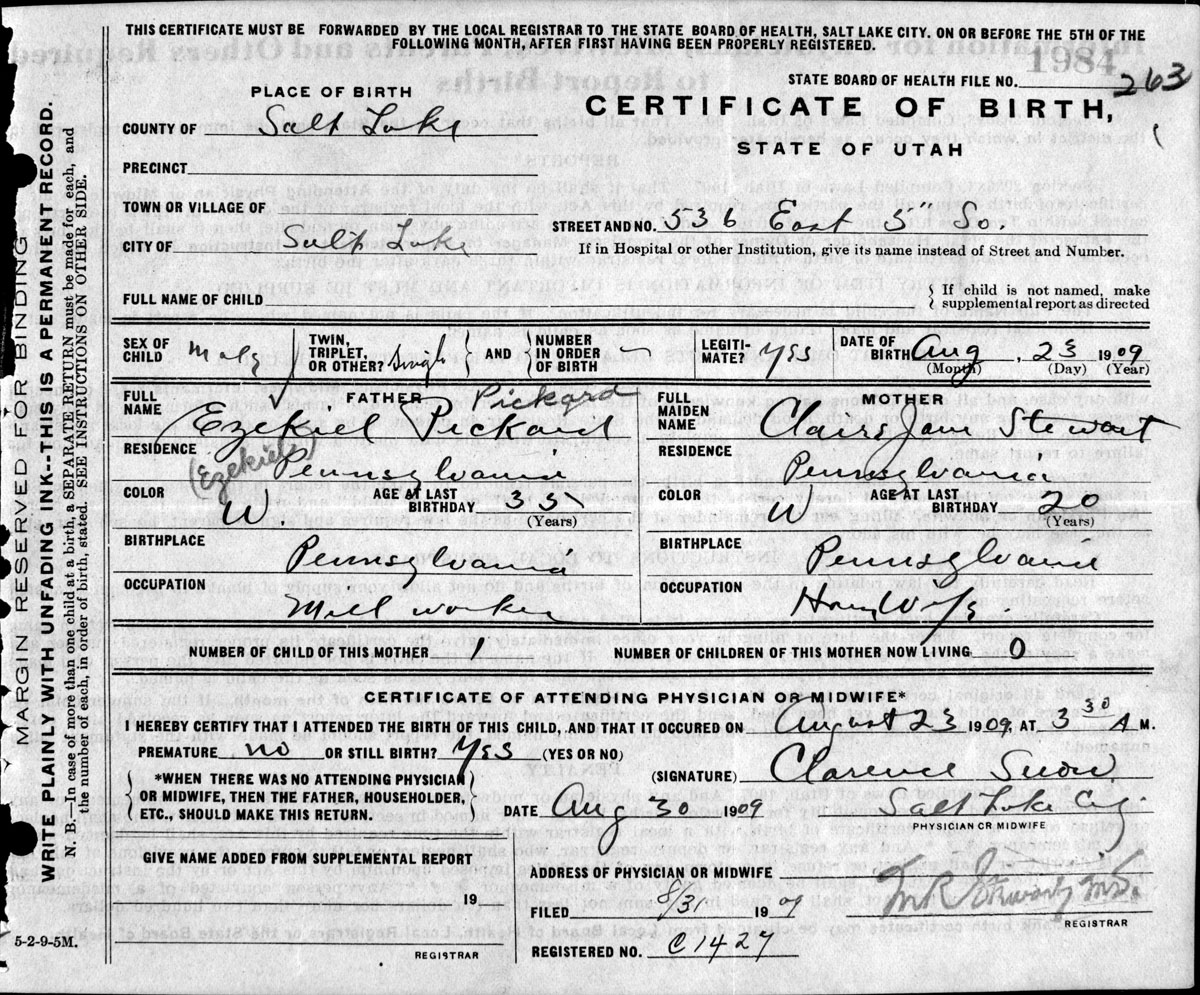 THIS CERTIFICATE MUST BE FORWARDED BY THE LOCAL REGISTRAR TO THE STATE BOARD OF HEALTH, SALT LAKE CITY. ON OR BEFORE THE 5TH OF THE
FOLLOWING MONTH, AFTER FIRST HAVING BEEN PROPERLY REGISTERED.
1984
STATE BOARD OF HEALTH FILE NO. 263
PLACE OF BIRTH
CERTIFICATE OF BIRTH,
COUNTY OF Salt Lake
STATE OF UTAH
PRECINCT
TOWN OR VILLAGE OF
STREET AND NO. 536 East 5" So.
CITY OF Salt Lake
If in Hospital or other Institution, give its name instead of Street and Number.
FULL NAME OF CHILD
{ If child is not named, make
supplemental report as directed
SEX OF CHILD Male TWIN, TRIPLET, OR OTHER? Singl AND NUMBER IN ORDER OF BIRTH LEGITIMATE? Yes DATE OF BIRTH Aug, 23 1909
(Month) (Day) (Year)
FATHER
Pickard
FULL NAME Ezekiel Pickard
RESIDENCE Pennsylvania
(Ezekiel)
COLOR W. AGE AT LAST BIRTHDAY 35
(Years)
BIRTHPLACE Pennsylvania
OCCUPATION Mill worker
MOTHER
FULL MAIDEN NAME Jane Stewart
RESIDENCE Pennsylvania
COLOR W AGE AT LAST BIRTHDAY 20
(Years)
BIRTHPLACE Pennsylvania
OCCUPATION House Wife.
NUMBER OF CHILD OF THIS MOTHER 1 NUMBER OF CHILDREN OF THIS MOTHER NOW LIVING 0
CERTIFICATE OF ATTENDING PHYSICIAN OR MIDWIFE*
I HEREBY CERTIFY THAT I ATTENDED THE BIRTH OF THIS CHILD, AND THAT IT OCCURED ON August 23 1909, AT 3 30 A M.
PREMATURE no OR STILL BIRTH? Yes (YES OR NO)
{ *WHEN THERE WAS NO ATTENDING PHYSICIAN
OR MIDWIFE, THEN THE FATHER, HOUSEHOLDER,
ETC., SHOULD MAKE THIS RETURN. }
(SIGNATURE) Clarence Snow
DATE Aug 30 1909 Salt Lake City.
PHYSICIAN OR MIDWIFE
GIVE NAME ADDED FROM SUPPLEMENTAL REPORT
19
REGISTRAR
ADDRESS OF PHYSICIAN OR MIDWIFE
FILED 8/31 1909 M.D.
REGISTRAR
REGISTERED NO. C1427
5-2-9-5M.
MARGIN RESERVED FOR BINDING
WRITE PLAINLY WITH UNFADING INK--THIS IS A PERMANENT RECORD.
N. B.--In case of more than one child at a birth, a SEPARATE RETURN must be made for each, and
the number of each, in order of birth, stated. SEE INSTRUCTIONS ON OTHER SIDE.